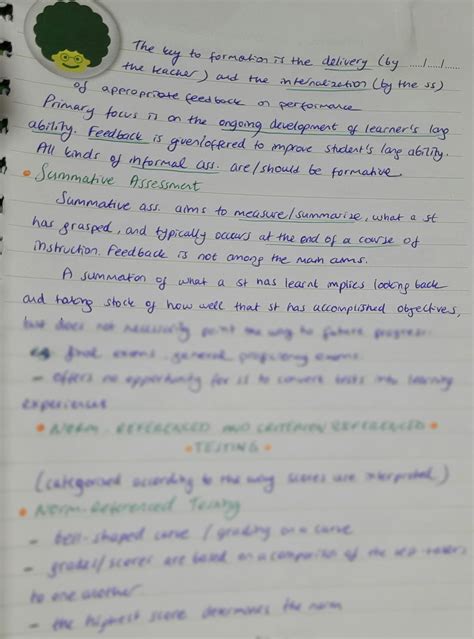 The key to formation is the delivery (by
..../..../....
the teacher) and the internalization (by the ss)
of appropriate feedback on performance
Primary focus is on the ongoing development of learner's lang
ability. Feedback is given/offered to improve student's lang ability.
All kinds of informal ass. are/should be formative.
• Summative Assessment
Summative ass. aims to measure/summarize, what a st
has grasped, and typically occurs at the end of a course of
instruction. Feedback is not among the main aims.
A summation of what a st has learnt implies looking back
and taking stock of how well that st has accomplished objectives,
but does not necessarily point the way to future progress.
e.g. final exams, general proficiency exams.
- offers no opportunity for ss to convert tests into learning
experiences
• NORM-REFERENCED AND CRITERION REFERENCED •
• TESTING •
(categorised according to the way scores are interpreted)
• Norm-Referenced Testing
- bell-shaped curve / grading on a curve
- grades/scores are based on a comparison of the test-takers
to one another
- the highest score determines the norm